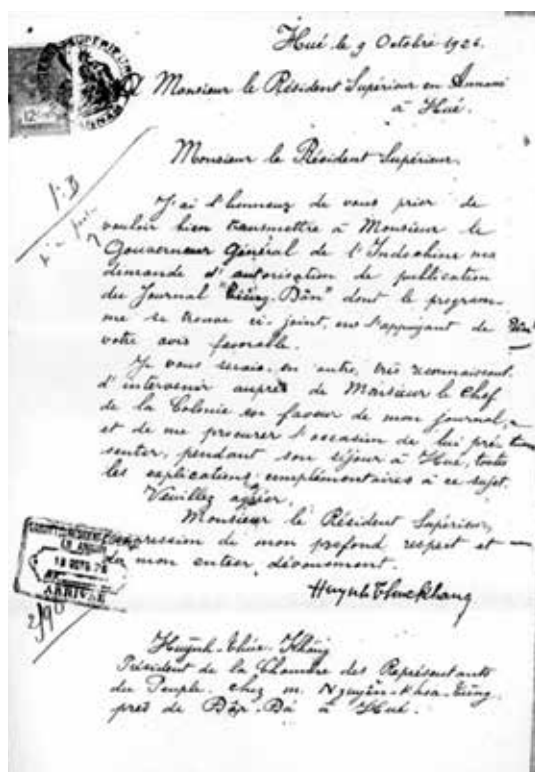 Hué le 9 Octobre 1926.
Monsieur le Résident Supérieur en Annam
à Hué.
Monsieur le Résident Supérieur,
J'ai l'honneur de vous prier de
vouloir bien transmettre à Monsieur le
Gouverneur Général de l'Indochine ma
demande d'autorisation de publication
du Journal "Tiếng-Dân" dont le program-
me se trouve ci-joint, en l'appuyant de
votre avis favorable.
Je vous serais, en outre, très reconnaissant
d'intervenir auprès de Monsieur le Chef
de la Colonie en faveur de mon journal,
et de me procurer l'occasion de lui pré
senter, pendant son séjour à Hué, toutes
les explications complémentaires à ce sujet.
Veuillez agréer,
Monsieur le Résident Supérieur,
l'expression de mon profond respect et
de mon entier dévouement.
ARRIVÉE
Huynh Thuc Khang
Huỳnh-Thúc-Kháng
Président de la Chambre des Représentants
du Peuple. chez M. Nguyễn-Khoa-Tùng,
près de Đập-Đá à Hué.